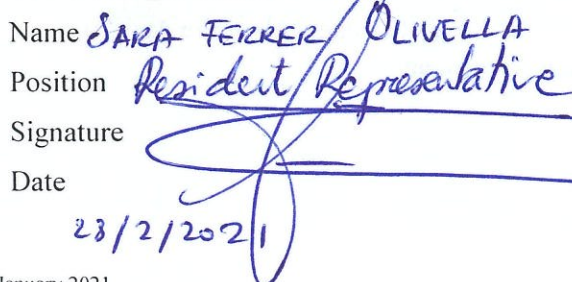 Name SARA FERRER OLIVELLA
Position Resident Representative
Signature
Date
23/2/2021
January 2021